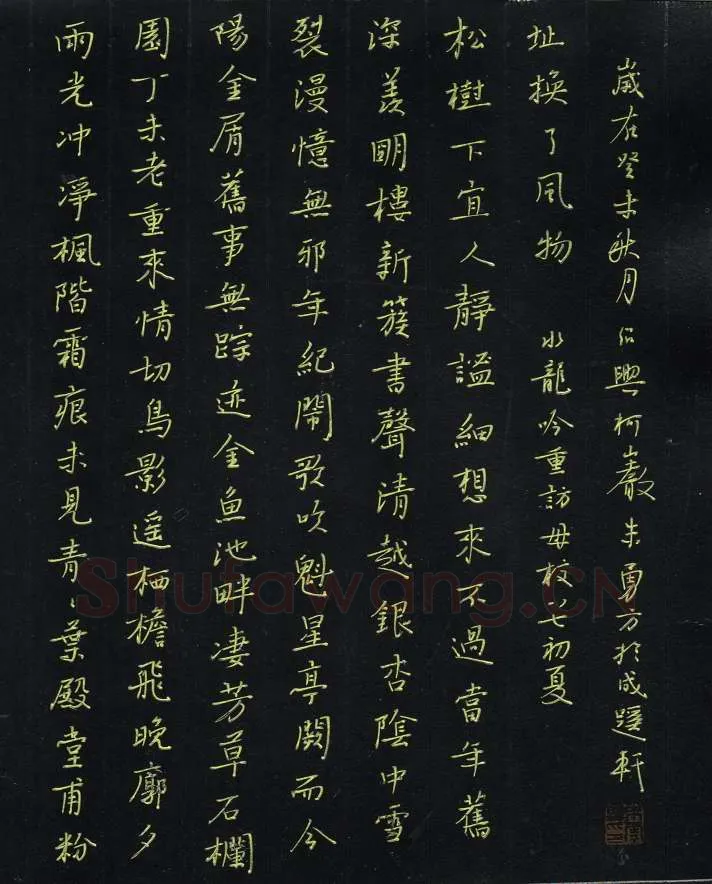 雨光冲淨楓階霜痕未見青〻葉殿堂甫粉
園丁未老重來情切鳥影遥栖檐飛晚廓夕
陽金屑舊事無踪迹金魚池畔淒芳草石欄
裂漫憶無邪年紀鬧歌吹魁星亭闕而今
深羨明樓新簇書聲清越銀杏陰中雪
松樹下宜人靜謐細想來不過當年舊
址換了風物 水龍吟重訪母校七初夏
歲在癸未秋月紹興柯巖朱勇方於成蹊軒
Shufawang.CN